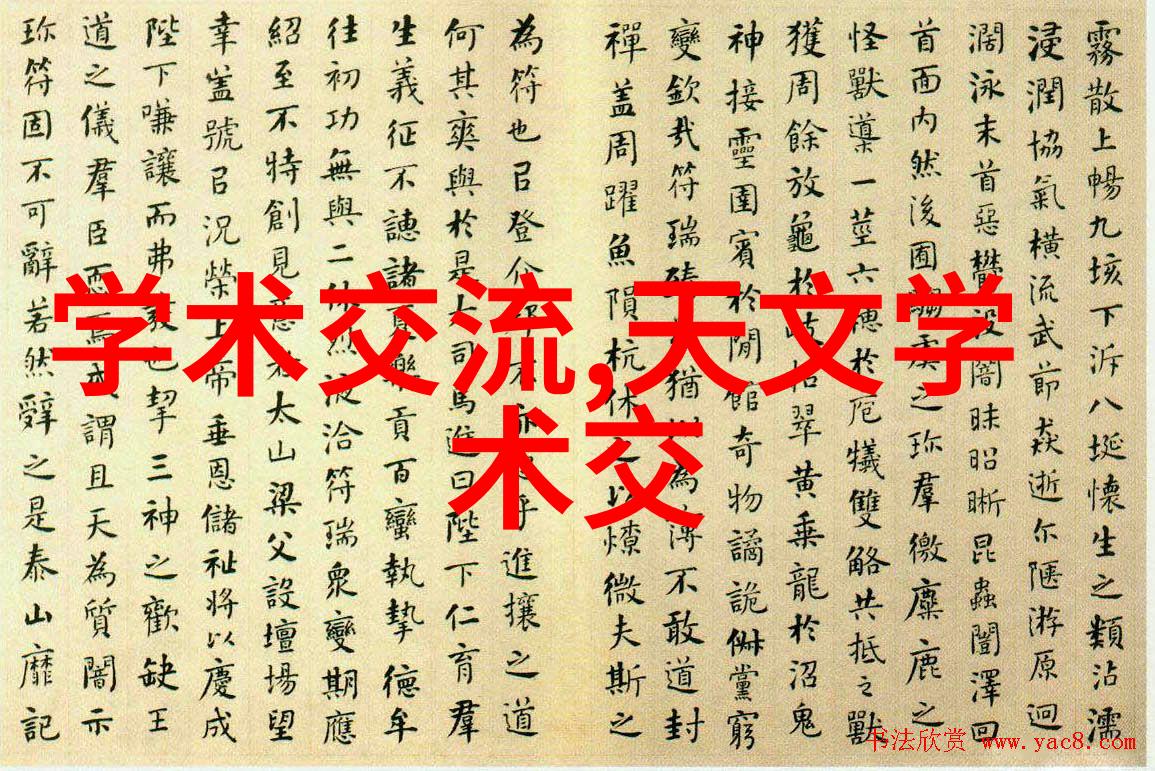 霧散上暢九垓下泝八埏懷生之類沾濡
浸潤協氣橫流武節猋逝尔陿游原迥
濶泳末首惡欝没闇昧昭晰昆蟲闓澤回
首面内然後囿騶虞之珎羣徼麋鹿之
怪獸導一莖六穗於庖犧雙觡共抵之獸
獲周餘放龜於岐招翠黄乗龍於沼鬼
神接靈圉賓於閒館奇物譎詭俶黨窮
變欽哉符瑞臻猶以為薄不敢道封
禪盖周躍魚隕杭休之以燎微夫斯之
為符也㠯登介不亦乎進攘之道
何其爽與於是大司馬進曰陛下仁育羣
生義征不譓諸夏樂貢百蠻執摯德牟
往初功無與二休烈液洽符瑞衆變期應
紹至不特創見意者太山梁父設壇場望
幸盖號㠯况榮上帝垂恩儲祉將以慶成
陛下嗛讓而弗發也挈三神之歡缺王
道之儀羣臣恧焉或謂且天為質闇示
珎符固不可辭若然辭之是泰山靡記
学术交流,天文学
术交
书法欣赏 www.yac8.com